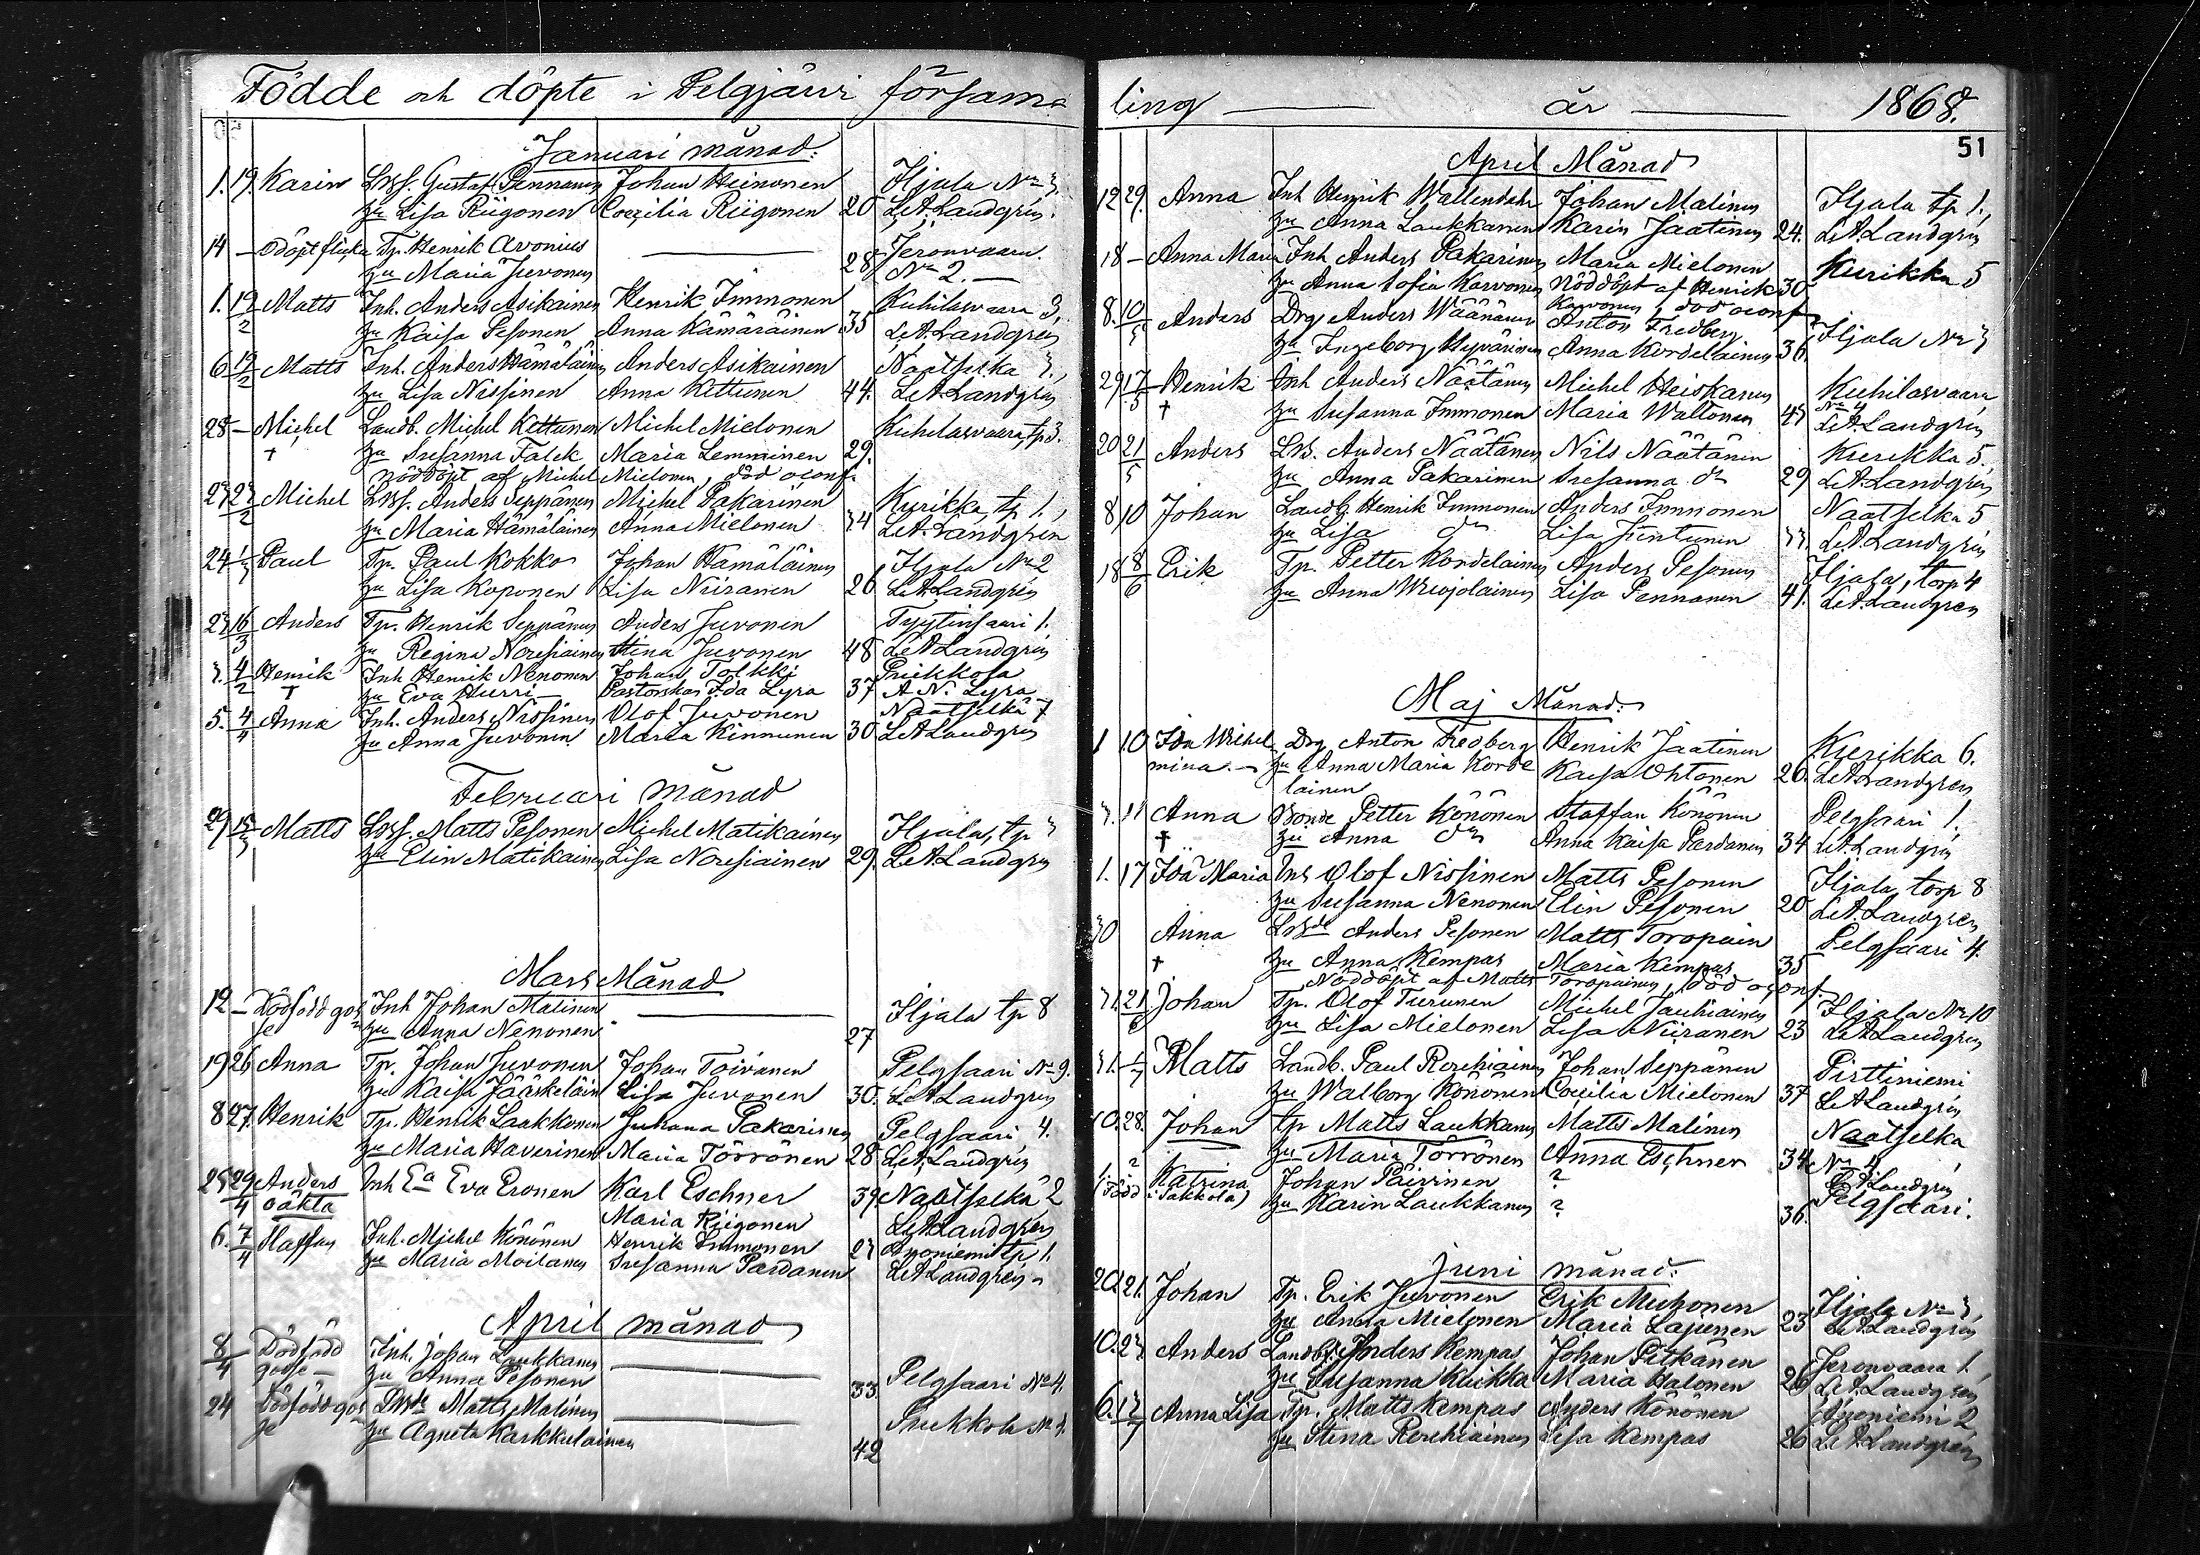 Födde och döpte i Pelgjärvi församling år 1868.
51
Januari månad.
1. 19. Karin Gustaf Pennanen Johan Heinonen Iljala No 3
hu Lisa Riigonen Cecilia Riigonen 20 L.A. Landgrén.
14 — Odöpt flicka Tp. Henrik Avonius — Jeronvaara
hu Maria Juvonen 28 No 2. —
1. 12/2 Matts Inh. Anders Asikainen Henrik Immonen Kuhilasvaara 3,
hu Kaisa Pesonen Anna Kämäräinen 35 L.A. Landgrén
6 12/2 Matts Inh. Anders Hämäläinen Anders Asikainen Naatselkä 3,
hu Lisa Nissinen Anna Kettunen 44. L.A. Landgrén
28 — Michel Landb. Michel Kettunen Michel Mielonen Kuhilasvaara, tp 3.
† hu Susanna Falck Maria Lemminen 29.
nöddöpt af Michel Mielonen, död oconf.
Michel Anders Seppänen Michel Pakarinen Kurikka, tp 1.,
hu Maria Hämäläinen Anna Mielonen 34 L.A. Landgrén
24 1/3 Paul Tp. Paul Kokko Johan Hämäläinen Iljala No 2
hu Lisa Koponen Lisa Niiranen 26 L.A. Landgrén
23 16/3 Anders Tp. Henrik Seppänen Anders Juvonen Tyytinsaari 1.
hu Regina Noresiainen Stina Juvonen 48 L.A. Landgrén
3. 4/2 Henrik Inh Henrik Nenonen Johan Tolkki Prikkola
† hu Eva Hurri — Pastorskan Ida Lyra 37 A. N. Lyra
5. 4/4 Anna Inh. Anders Nissinen Olof Juvonen Naatselkä 7
hu Anna Juvonen Maria Kinnunen 30 L.A. Landgrén
Februari månad
29 15/3 Matts Matts Pesonen Michel Matikainen Iljala, tp 3
hu Elin Matikainen Lisa Noresiainen 29. L.A. Landgrén
Mars Månad
12 — Dödfödd gos Inh Johan Malinen — Iljala tp 8
se hu Anna Nenonen 27
19 26 Anna Tp. Johan Juvonen Johan Toivanen Pelgsaari No 9.
hu Kaisa Jääskeläin Lisa Juvonen 30. L.A. Landgrén
8 27. Henrik Tp. Henrik Laukkanen Juhana Pakarinen Pelgsaari 4.
hu Maria Haverinen Maria Törrönen 28 L.A. Landgrén
25 29/4 Anders Inh Ea Eva Eronen Karl Eschner 39 Naatselkä 2
oäkta Maria Riigonen L.A. Landgrén
6. 7/4 Staffan Inh. Michel Könönen Henrik Immonen 27 tp 1.
hu Maria Moilanen Susanna Pardanen L.A. Landgrén
April månad
8/4 Dödfödd Inh. Johan Laukkanen — Pelgsaari No 4.
gosse — hu Anna Pesonen 33
24 Dödfödd gos Matts Malinen —
se hu Agneta Karkkulainen 42
April Månad
12 29. Anna Inh Henrik Wallendahr Johan Malinen Iljala tp 1.,
hu Anna Laukkanen Karin Jaatinen 24. L.A. Landgrén
18 — Anna Maria Inh Anders Pakarinen Maria Mielonen Kurikka 5
hu Anna Sofia Karvonen nöddöpt af Henrik 30
Karvonen, död oconf
8. 10/5 Anders Drg Anders Wäänänen Anton Fredberg Iljala No 3
hu Ingeborg Hyvärinen Anna Kordelainen 36.
29 17/5 Henrik Inh Anders Näätänen Michel Heiskanen Kuhilasvaara
† hu Susanna Immonen Maria Waltonen 45 No 4 L.A. Landgrén
20 21/5 Anders Anders Näätänen Nils Näätänen Kurikka 5.
hu Anna Pakarinen Susanna do 29 L.A. Landgrén
8 10 Johan Landb. Henrik Immonen Anders Immonen Naatselkä 5
hu Lisa do Lisa Juntunen 33. L.A. Landgrén
18 8/6 Erik Tp. Petter Kordelainen Anders Pesonen Iljala, torp 4
hu Anna Wuojolainen Lisa Pennanen 41. L.A. Landgrén
Maj Månad.
1 10 Ida Wilhel Drg Anton Fredberg Henrik Jaatinen Kurikka 6.
mina. — hu Anna Maria Korde Kaisa Ohtonen 26. L.A. Landgrén
lainen
3. 11 Anna Bonde Petter Könönen Staffan Könönen Pelgsaari 1.,
† hu Anna do Anna Kaisa Pardanen 34 L.A. Landgrén
1. 17 Ida Maria Inh Olof Nissinen Matts Pesonen Iljala torp 8
hu Susanna Nenonen Elin Pesonen 20 L.A. Landgrén
30 Anna Anders Pesonen Matts Toropain Pelgsaari 4.
† hu Anna Kempas Maria Kempas 35
Nöddöpt af Matts Toropainen, död oconf.
31. 21/6 Johan Tp. Olof Turunen Michel Jauhiainen Iljala No 10
hu Lisa Mielonen Lisa Niiranen 23 L.A. Landgrén
31. Matts Landb. Paul Rerehiainen Johan Seppänen Pirttiniemi
hu Walborg Könönen Cecilia Mielonen 37 L.A. Landgrén
10. 28. Johan tp Matts Laukkanen Matts Malinen Naatselka
hu Maria Törrönen Anna Eschner 34 No 4 L.A. Landgrén
? Katrina Johan Päivinen ? Pelgsaari.
(Född i Sakkola) hu Karin Laukkanen ? 36.
Juni månad.
20. 21. Johan Tp. Erik Juvonen Erik Muhonen Iljala No 3,
hu Anna Mielonen Maria Lajunen 23 L.A. Landgrén
10. 23 Anders Landb. Anders Kempas Johan Pitkänen Jeronvaara 1.
hu Susanna Kuikka Maria Halonen 26 L.A. Landgrén
6. Anna Lisa Tp. Matts Kempas Anders Könönen 2
hu Stina Rerehiainen Lisa Kempas 26 L.A. Landgrén